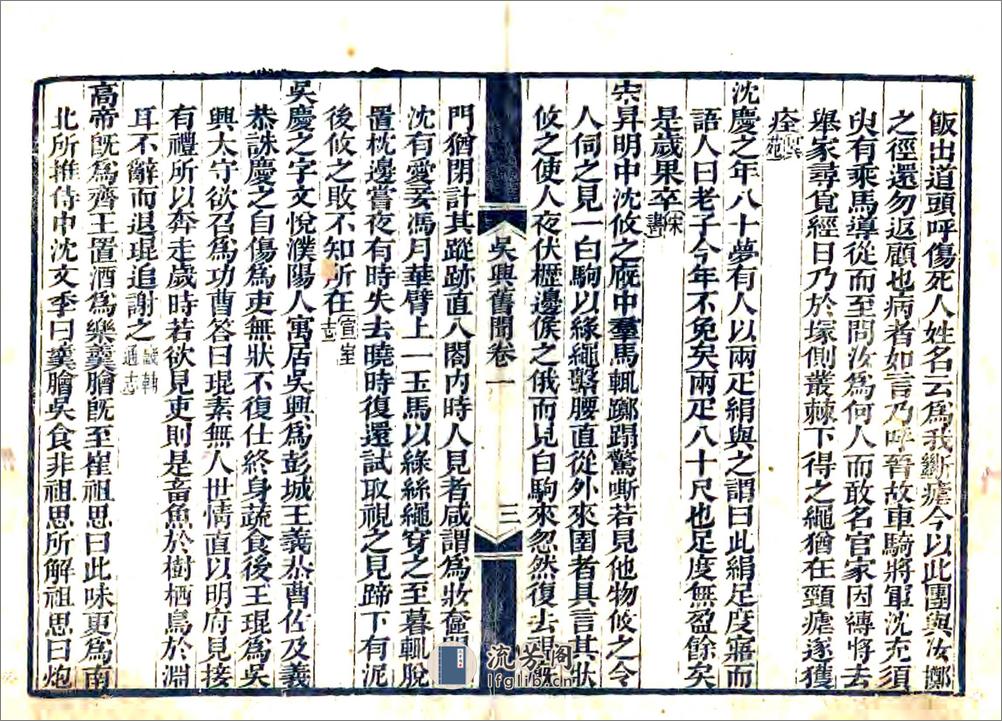 飯出道頭呼傷死人姓名云為我斷瘧今以此團與汝擲
之徑還勿返顧也病者如言乃呼晉故車騎將軍沈充須
臾有乘馬導從而至問汝為何人而敢名官家因縛將去
舉家尋覓經日乃於塚側叢棘下得之繩猶在頸瘧遂獲
痊異苑
沈慶之年八十夢有人以兩疋絹與之謂曰此絹足度寤而
語人曰老子今年不免矣兩疋八十尺也足度無盈餘矣
是歲果卒宋書
宋昇明中沈攸之廐中羣馬輒躑蹋驚嘶若見他物攸之令
人伺之見一白駒以綠繩繫腰直從外來圉者具言其狀
攸之使人夜伏櫪邊候之俄而見白駒來忽然復去視廐
吳興舊聞卷一 三
門猶閉計其蹤跡直入閤內時人見者咸謂為妝奩間
沈有愛妾馮月華臂上一玉馬以綠絲繩穿之至暮輒脫
置枕邊嘗夜有時失去曉時復還試取視之見蹄下有泥
後攸之敗不知所在宣室志
吳慶之字文悅濮陽人寓居吳興為彭城王義恭曹佐及義
恭誅慶之自傷為吏無狀不復仕終身蔬食後王琨為吳
興太守欲召為功曹答曰琨素無人世情直以明府見接
有禮所以奔走歲時若欲見吏則是畜魚於樹栖鳥於淵
耳不辭而退琨追謝之通志
高帝旣為齊王置酒為樂羹膾旣至崔祖思曰此味更為南
北所推侍中沈文季曰羹膾吳食非祖思所解祖思曰炮
流芳阁
lfglib.cn